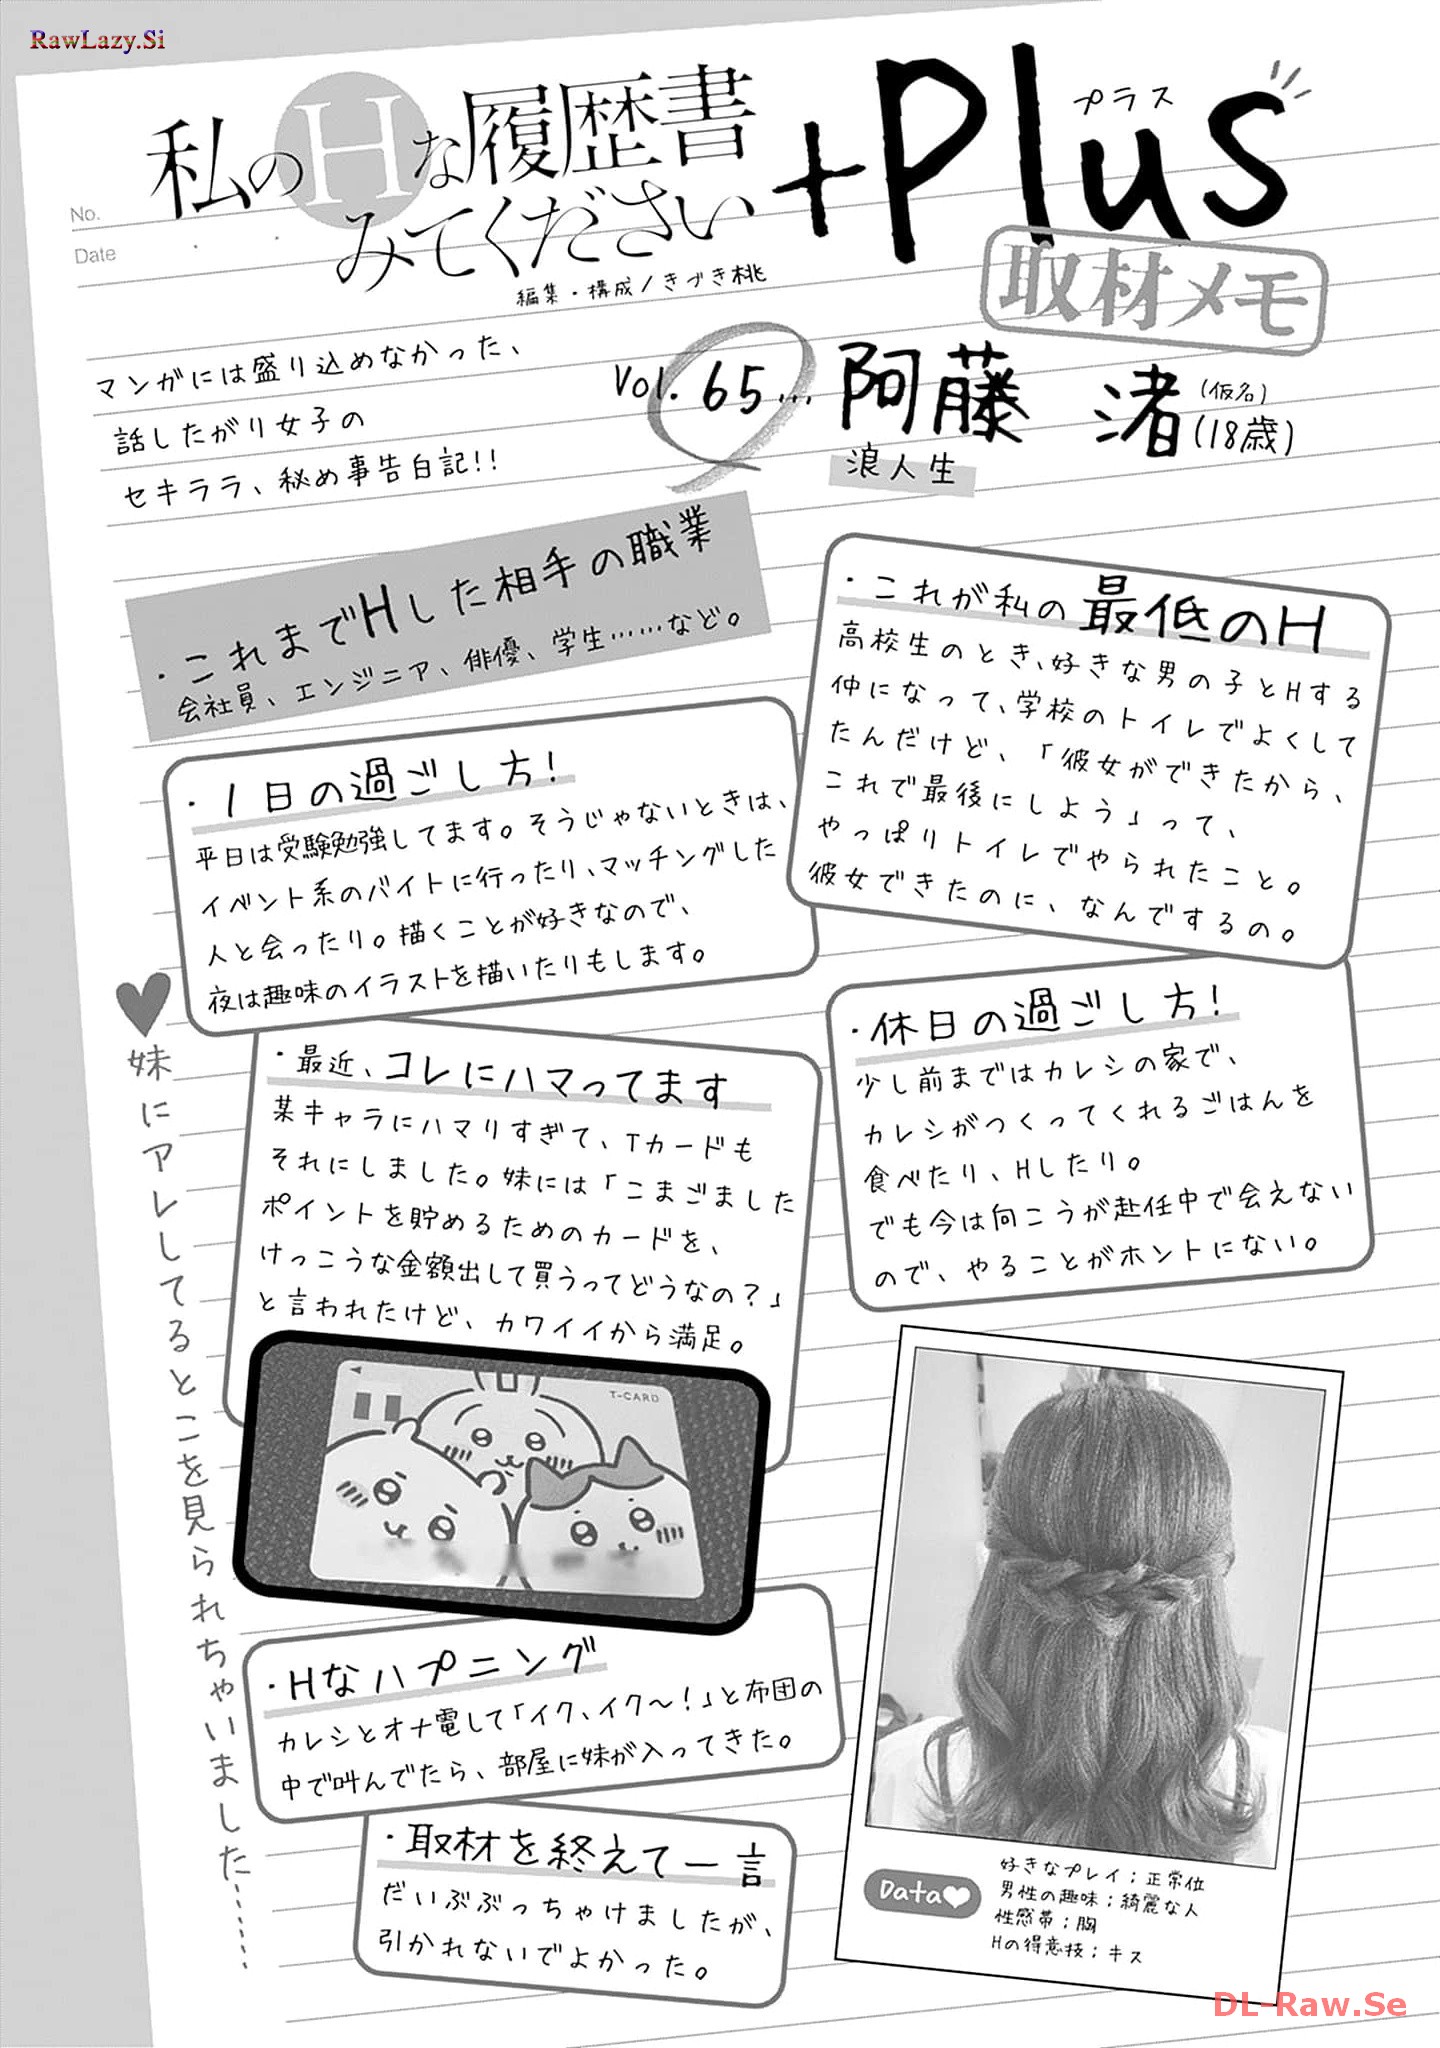 RawLazy.Si
No.
Date
私のHな履歴書
みてください
+Plus
プラス
編集・構成/きづき桃
取材メモ
マンガには盛り込めなかった、
話したがり女子の
セキララ、秘め事告白記!!
Vol. 65…
阿藤 渚
(仮名)
(18歳)
浪人生
・これまでHした相手の職業
会社員、エンジニア、俳優、学生……など。
・1日の過ごし方!
平日は受験勉強してます。そうじゃないときは、
イベント系のバイトに行ったり、マッチングした
人と会ったり。描くことが好きなので、
夜は趣味のイラストを描いたりもします。
・休日の過ごし方!
少し前まではカレシの家で、
カレシがつくってくれるごはんを
食べたり、Hしたり。
でも今は向こうが赴任中で会えない
ので、やることがホントにない。
・最近、コレにハマってます
某キャラにハマりすぎて、Tカードも
それにしました。妹には「こまごました
ポイントを貯めるためのカードを、
けっこうな金額出して買うってどうなの?」
と言われたけど、カワイイから満足。
T-CARD
・Hなハプニング
カレシとオナ電して「イク、イク～!」と布団の
中で叫んでたら、部屋に妹が入ってきた。
♥妹にアレしてるとこを見られちゃいました……
・取材を終えて一言
だいぶぶっちゃけましたが、
引かれないでよかった。
Data♥
好きなプレイ；正常位
男性の趣味；綺麗な人
性感帯；胸
Hの得意技；キス
DL-Raw.Se